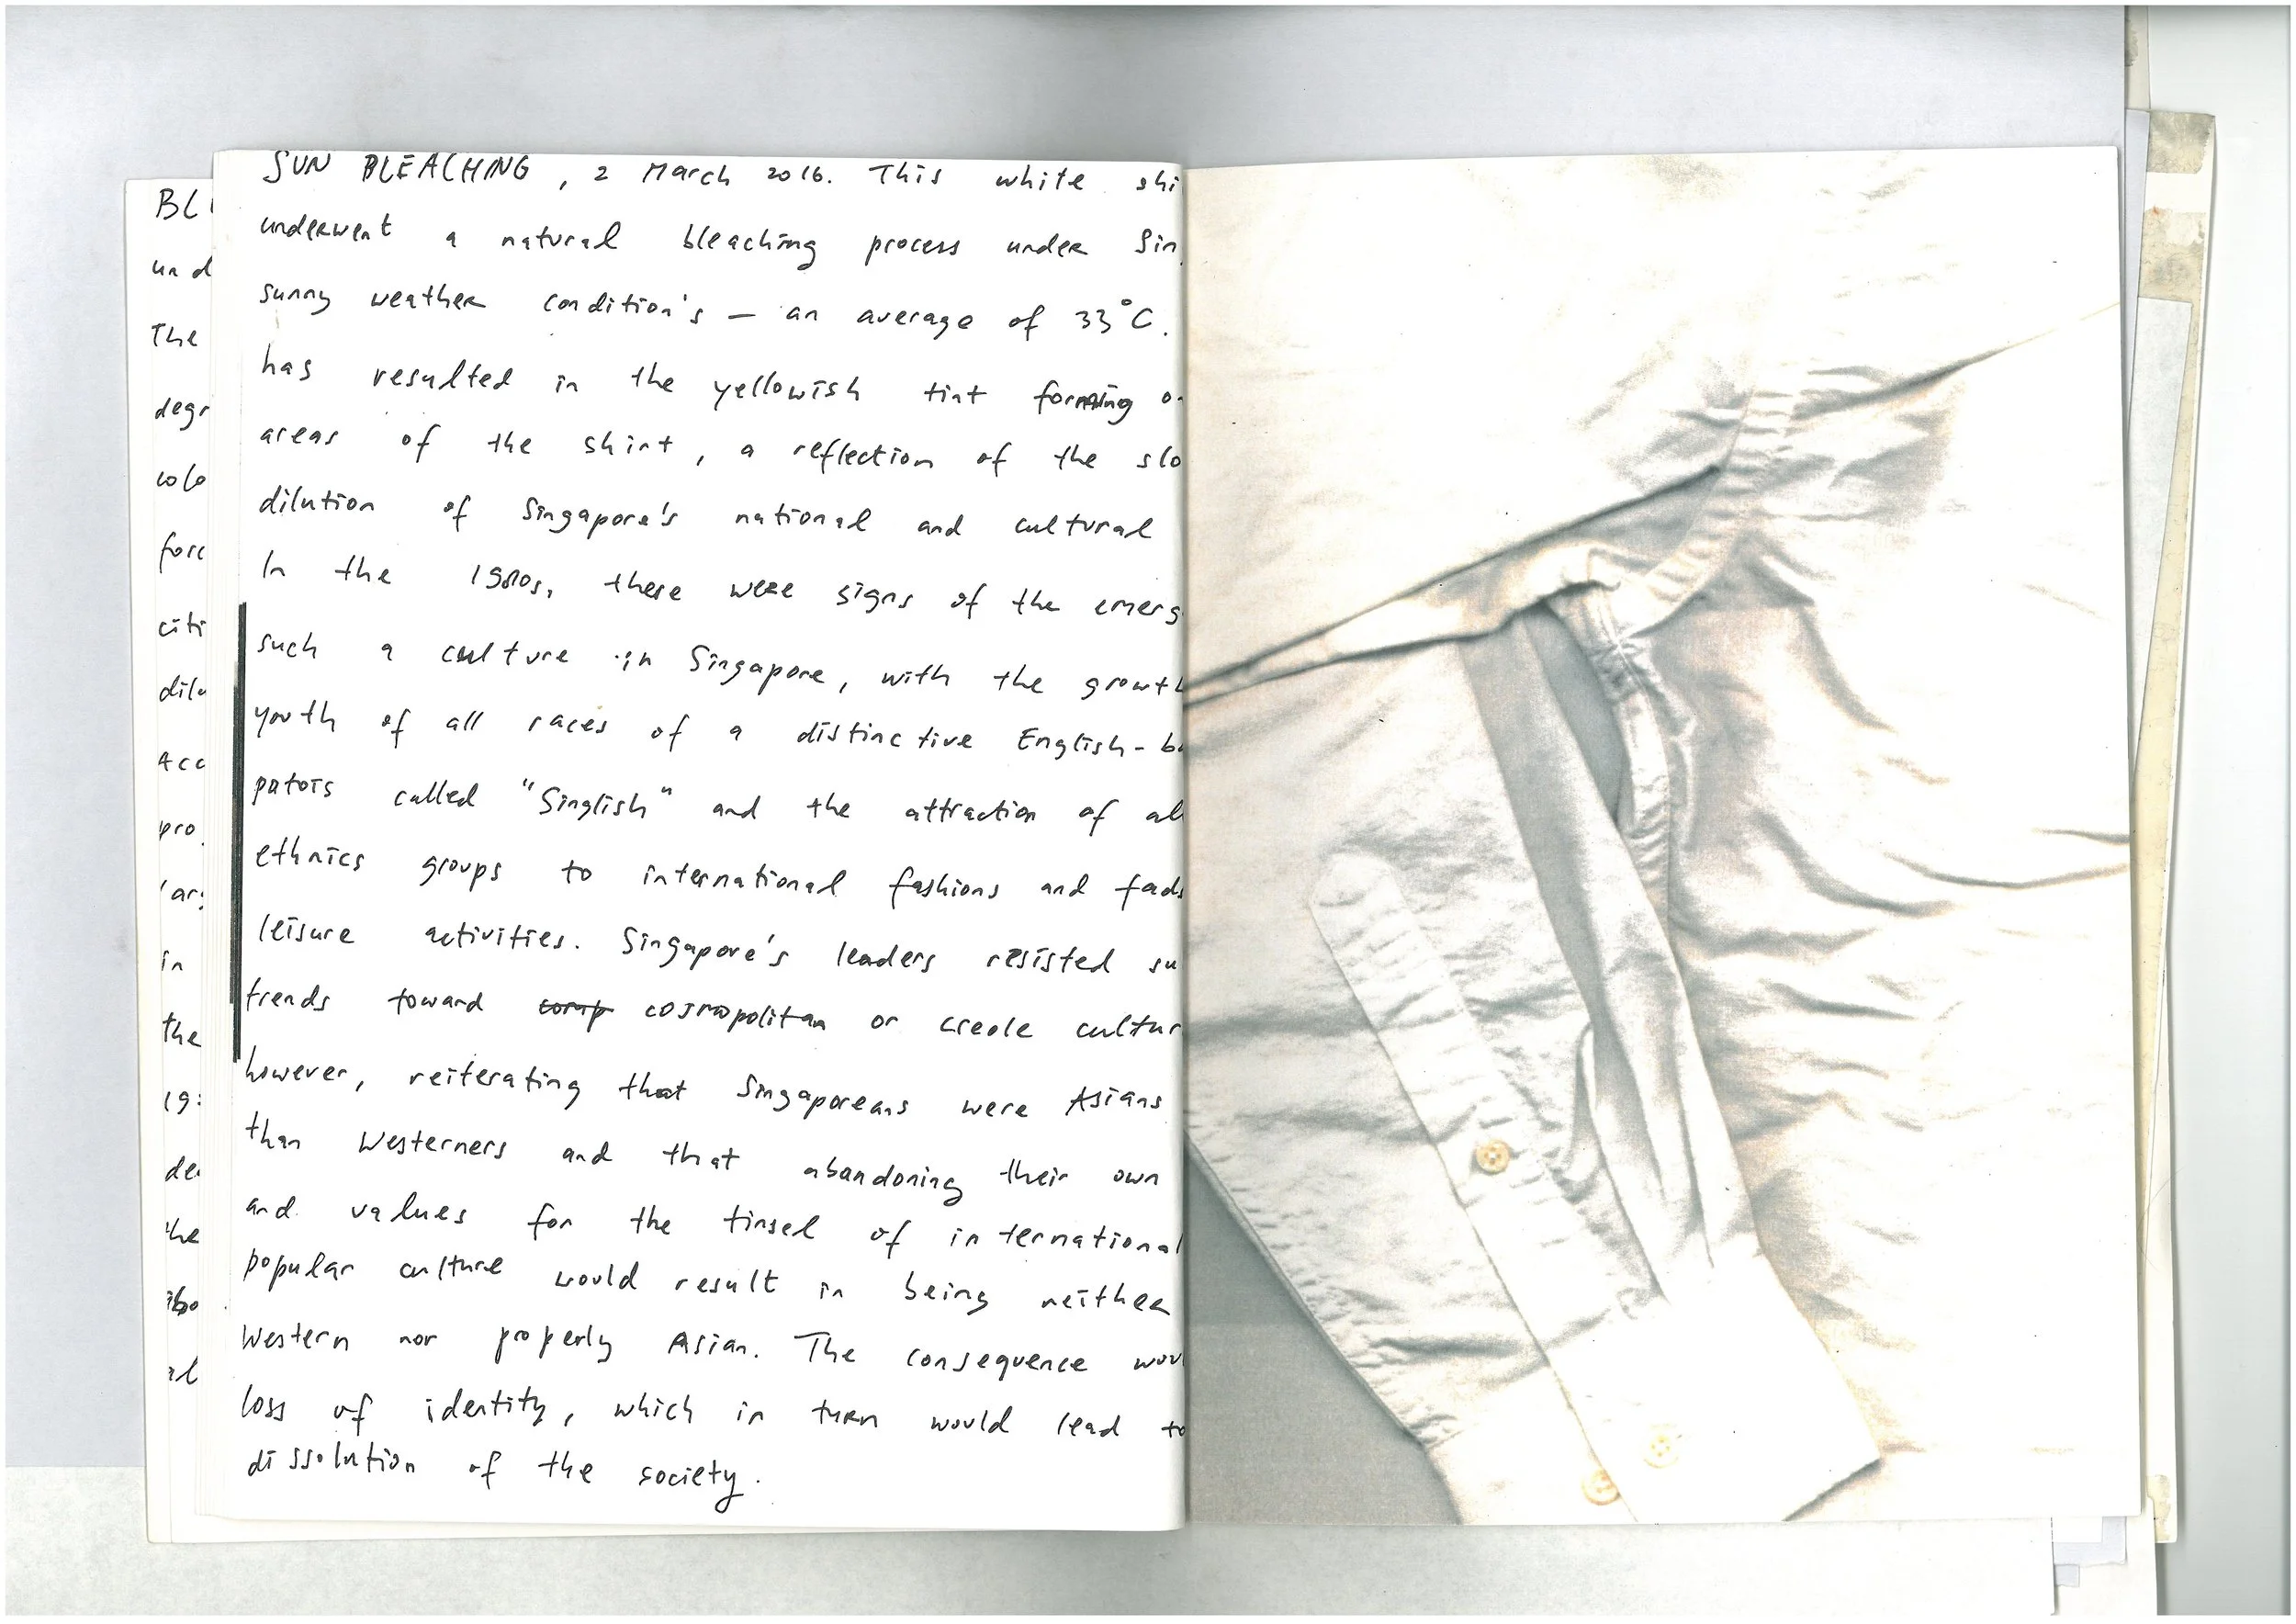 SUN BLEACHING, 2 March 2016. This white shi
underwent a natural bleaching process under Sin
sunny weather condition's — an average of 33°C.
has resulted in the yellowish tint forming o
areas of the shirt, a reflection of the slo
dilution of Singapore's national and cultural
In the 1980s, there were signs of the emerg
such a culture in Singapore, with the growth
youth of all races of a distinctive English-ba
patois called "Singlish" and the attraction of al
ethnics groups to international fashions and fads
leisure activities. Singapore's leaders resisted su
trends toward comp cosmopolitan or creole cultur
however, reiterating that Singaporeans were Asians
than Westerners and that abandoning their own
and values for the tinsel of international
popular culture would result in being neither
Western nor properly Asian. The consequence wou
loss of identity, which in turn would lead to
dissolution of the society.
BL
und
The
degr
colo
forc
citi
dilu
Acc
pro
larg
in
the
19
de
the
al